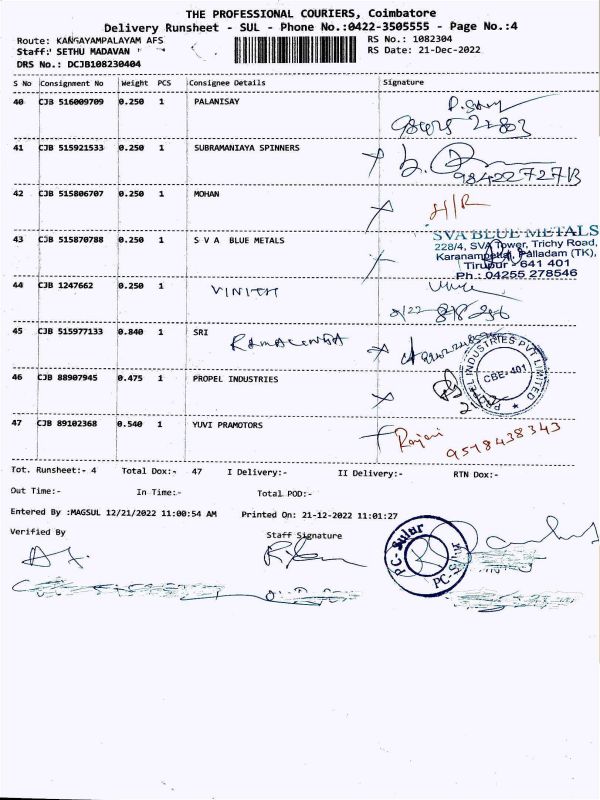 THE PROFESSIONAL COURIERS, Coimbatore
Delivery Runsheet - SUL - Phone No.:0422-3505555 - Page No.:4
Route: KANGAYAMPALAYAM AFS
RS No.: 1082304
Staff: SETHU MADAVAN
RS Date: 21-Dec-2022
DRS No.: DCJB108230404
S No Consignment No Weight PCS Consignee Details Signature
40 CJB 516009709 0.250 1 PALANISAY
41 CJB 515921533 0.250 1 SUBRAMANIAYA SPINNERS
9842272713
42 CJB 515806707 0.250 1 MOHAN H/R
43 CJB 515870788 0.250 1 S V A BLUE METALS
SVA BLUE METALS
228/4, SVA Tower, Trichy Road,
Karanampettai, Palladam (TK),
Tirupur - 641 401
Ph : 04255 278546
44 CJB 1247662 0.250 1 VINITH
45 CJB 515977133 0.840 1 SRI
46 CJB 88907945 0.475 1 PROPEL INDUSTRIES
PROPEL INDUSTRIES PVT LIMITED
CBE-401
47 CJB 89102368 0.540 1 YUVI PRAMOTORS
Rajani
9578438343
Tot. Runsheet:- 4 Total Dox:- 47 I Delivery:- II Delivery:- RTN Dox:-
Out Time:- In Time:- Total POD:-
Entered By :MAGSUL 12/21/2022 11:00:54 AM Printed On: 21-12-2022 11:01:27
Verified By Staff Signature
PC-Sulur
PC-Sulur